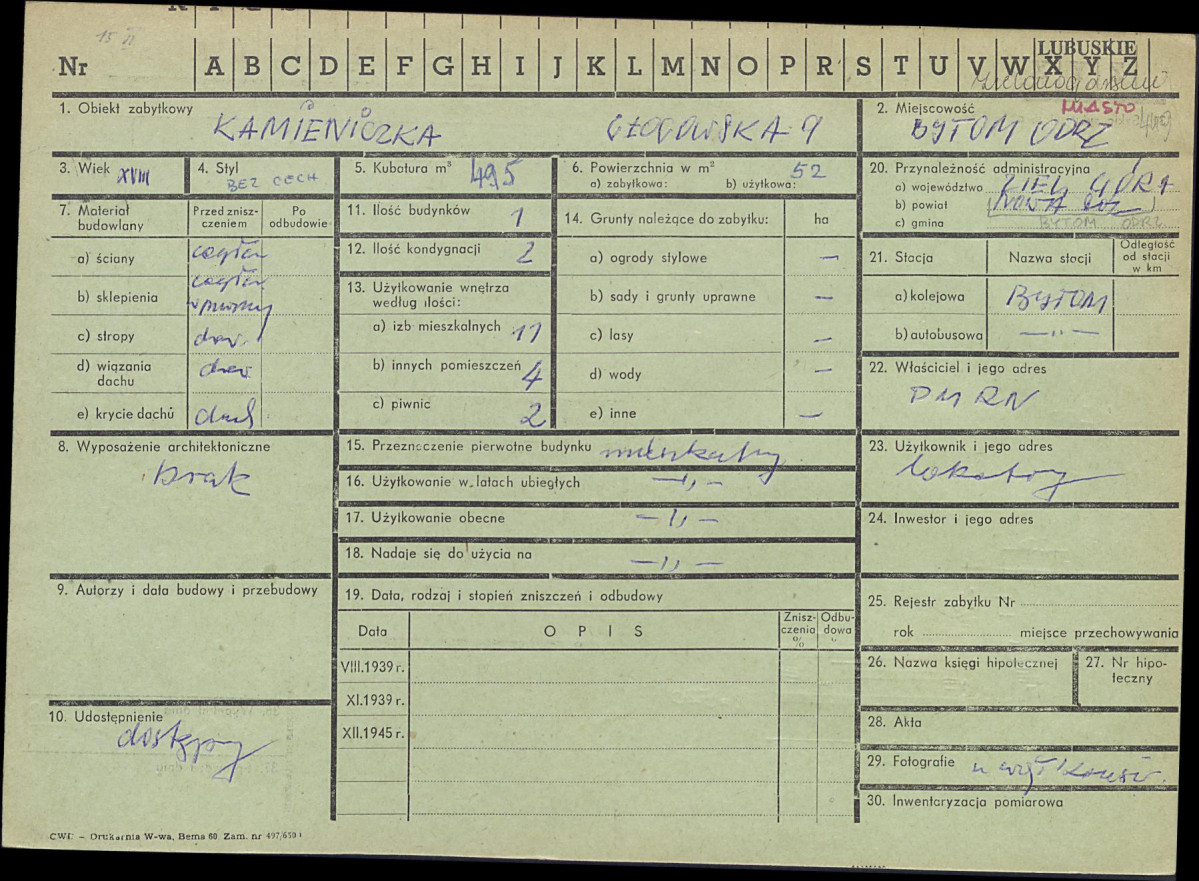 15 II
Nr A B C D E F G H I J K L M N O P R S T U V W X Y Z
LUBUSKIE
1. Obiekt zabytkowy
KAMIENICZKA GŁOGOWSKA 9
2. Miejscowość MIASTO
BYTOM ODRZ
3. Wiek XVIII
4. Styl BEZ CECH
5. Kubatura m³ 495
6. Powierzchnia w m² 52
a) zabytkowa: b) użytkowa:
20. Przynależność administracyjna
a) województwo ZIEL. GÓRA
b) powiat NOWA SÓL
c) gmina BYTOM ODRZ.
7. Materiał budowlany
Przed zniszczeniem
Po odbudowie
a) ściany cegła
b) sklepienia cegła
c) stropy drew.
d) wiązania dachu drew
e) krycie dachu dach
11. Ilość budynków 1
12. Ilość kondygnacji 2
13. Użytkowanie wnętrza według ilości:
a) izb mieszkalnych 11
b) innych pomieszczeń 4
c) piwnic 2
14. Grunty należące do zabytku: ha
a) ogrody stylowe —
b) sady i grunty uprawne —
c) lasy —
d) wody —
e) inne —
21. Stacja
Nazwa stacji
Odległość od stacji w km
a) kolejowa BYTOM
b) autobusowa — „ —
22. Właściciel i jego adres
PMRN
8. Wyposażenie architektoniczne
brak
15. Przeznaczenie pierwotne budynku mieszkalny
16. Użytkowanie w latach ubiegłych — „ —
17. Użytkowanie obecne — „ —
18. Nadaje się do użycia na — „ —
23. Użytkownik i jego adres
lokatorzy
24. Inwestor i jego adres
9. Autorzy i data budowy i przebudowy
19. Data, rodzaj i stopień zniszczeń i odbudowy
Data OPIS Zniszczenia % Odbudowa "
VIII.1939 r.
XI.1939 r.
XII.1945 r.
25. Rejestr zabytku Nr
rok miejsce przechowywania
26. Nazwa księgi hipotecznej
27. Nr hipoteczny
10. Udostępnienie
dostępny
28. Akta
29. Fotografie u woj. konserw.
30. Inwentaryzacja pomiarowa
CWD – Drukarnia W-wa, Bema 60. Zam. nr 497/650